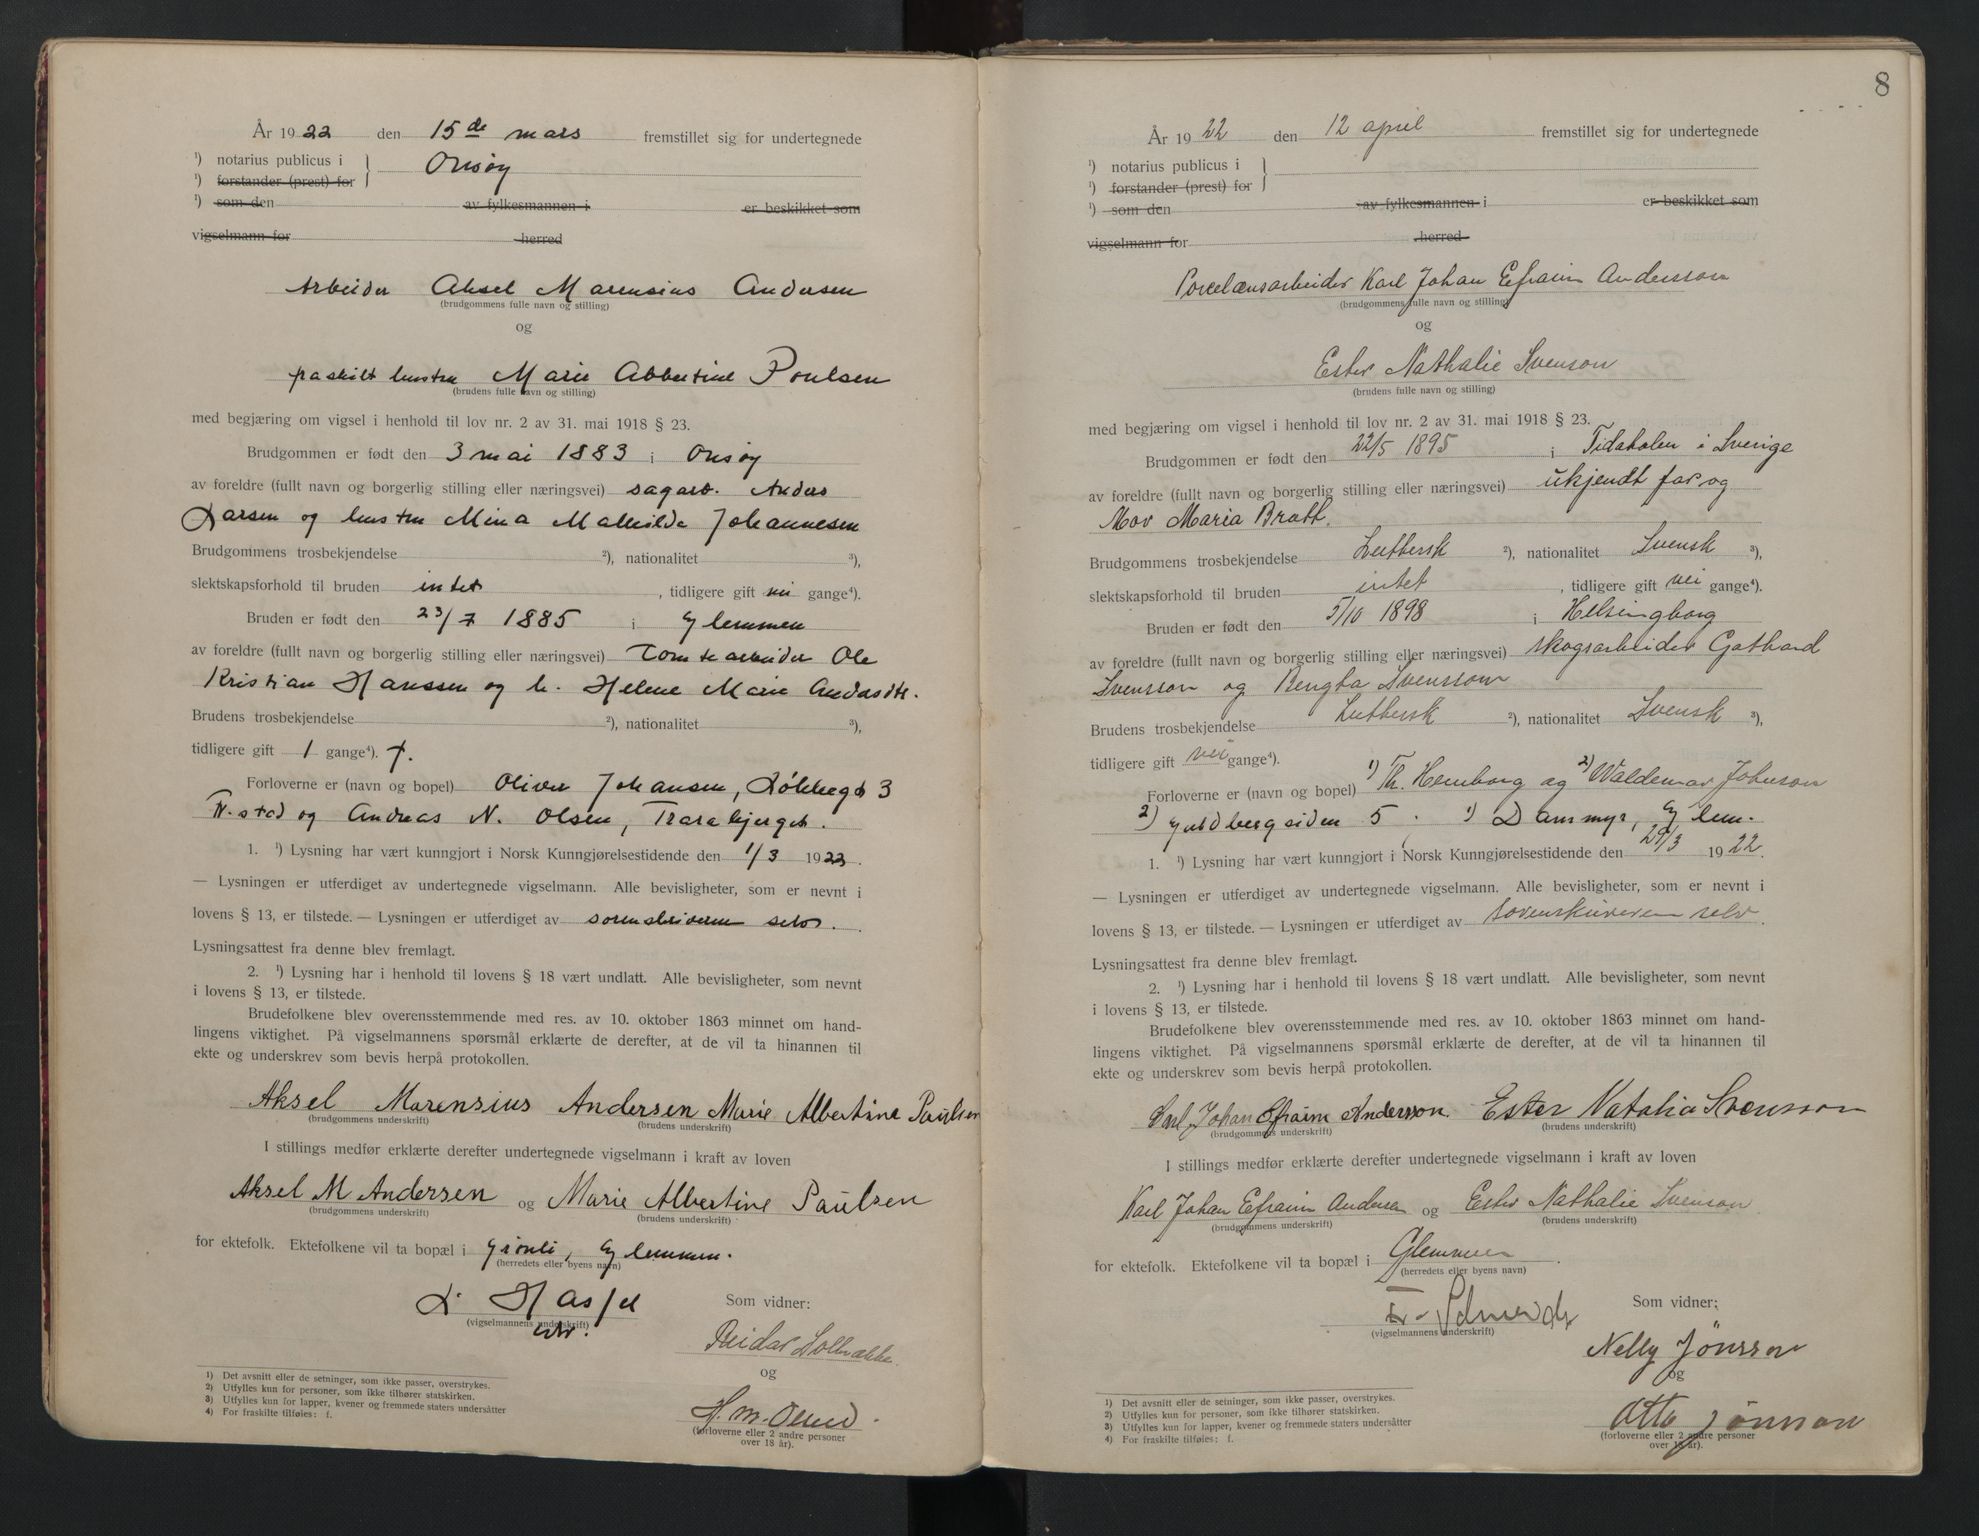 År 1922 den 15de mars fremstillet sig for undertegnede
¹) notarius publicus i } Onsøy
¹) forstander (prest) for
¹) som den av fylkesmannen i er beskikket som
vigselmann for herred
Arbeider Aksel Marensius Andersen
(brudgommens fulle navn og stilling)
og
fraskilt hustru Marie Abbertine Poulsen
(brudens fulle navn og stilling)
med begjæring om vigsel i henhold til lov nr. 2 av 31. mai 1918 § 23.
Brudgommen er født den 3 mai 1883 i Onsøy
av foreldre (fullt navn og borgerlig stilling eller næringsvei) sagarb. Anders
Larsen og hustru Mina Mathilde Johannesen
Brudgommens trosbekjendelse ²), nationalitet ³),
slektskapsforhold til bruden intet , tidligere gift nei gange⁴).
Bruden er født den 23/7 1885 i Glemmen
av foreldre (fullt navn og borgerlig stilling eller næringsvei) Tomtearbeider Ole
Kristian Hanssen og h. Helene Marie Andersdtr.
Brudens trosbekjendelse ²), nationalitet ³),
tidligere gift 1 gange⁴). f.
Forloverne er (navn og bopel) Oliver Johansen, Løkkegt 3
Fr.stad og Andreas N. Olsen, Trarabjerget.
1. ¹) Lysning har vært kunngjort i Norsk Kunngjørelsestidende den 1/3 1922.
— Lysningen er utferdiget av undertegnede vigselmann. Alle bevisligheter, som er nevnt i
lovens § 13, er tilstede. — Lysningen er utferdiget av sorenskriveren selv.
Lysningsattest fra denne blev fremlagt.
2. ¹) Lysning har i henhold til lovens § 18 vært undlatt. Alle bevisligheter, som nevnt
i lovens § 13, er tilstede.
Brudefolkene blev overensstemmende med res. av 10. oktober 1863 minnet om hand-
lingens viktighet. På vigselmannens spørsmål erklærte de derefter, at de vil ta hinannen til
ekte og underskrev som bevis herpå protokollen.
Aksel Marensius Andersen Marie Albertine Paulsen
(brudgommens underskrift) (brudens underskrift)
I stillings medfør erklærte derefter undertegnede vigselmann i kraft av loven
Aksel M Andersen og Marie Albertine Paulsen
(brudgommens underskrift) (brudens underskrift)
for ektefolk. Ektefolkene vil ta bopæl i Grønli, Glemmen.
(herredets eller byens navn)
Som vidner:
(vigselmannens underskrift)
Reidar
og
H. M.
(forloverne eller 2 andre personer
over 18 år).
1) Det avsnitt eller de setninger, som ikke passer, overstrykes.
2) Utfylles kun for personer, som ikke tilhører statskirken.
3) Utfylles kun for lapper, kvener og fremmede staters undersåtter
4) For fraskilte tilføies: f.
8
År 1922 den 12 april fremstillet sig for undertegnede
¹) notarius publicus i }
¹) forstander (prest) for
¹) som den av fylkesmannen i er beskikket som
vigselmann for herred
Porcelænsarbeider Karl Johan Efraim Andersson
(brudgommens fulle navn og stilling)
og
Ester Nathalie Svenson
(brudens fulle navn og stilling)
med begjæring om vigsel i henhold til lov nr. 2 av 31. mai 1918 § 23.
Brudgommen er født den 22/5 1895 i Tidaholm i Sverige
av foreldre (fullt navn og borgerlig stilling eller næringsvei) ukjendt far og
Mor Maria Bratt.
Brudgommens trosbekjendelse Luthersk ²), nationalitet Svensk ³),
slektskapsforhold til bruden intet , tidligere gift nei gange⁴).
Bruden er født den 5/10 1898 i Helsingborg
av foreldre (fullt navn og borgerlig stilling eller næringsvei) skogsarbeider Gothard
Svensson og Bengta Svensson
Brudens trosbekjendelse Luthersk ²), nationalitet Svensk ³),
tidligere gift nei gange⁴).
Forloverne er (navn og bopel) ¹) Th. Hemborg og ²) Waldemar Johnson
²) Guldbergsiden 5. ¹) Dammyr, Glem.
1. ¹) Lysning har vært kunngjort i Norsk Kunngjørelsestidende den 29/3 1922.
— Lysningen er utferdiget av undertegnede vigselmann. Alle bevisligheter, som er nevnt i
lovens § 13, er tilstede. — Lysningen er utferdiget av sorenskriveren selv.
Lysningsattest fra denne blev fremlagt.
2. ¹) Lysning har i henhold til lovens § 18 vært undlatt. Alle bevisligheter, som nevnt
i lovens § 13, er tilstede.
Brudefolkene blev overensstemmende med res. av 10. oktober 1863 minnet om hand-
lingens viktighet. På vigselmannens spørsmål erklærte de derefter, at de vil ta hinannen til
ekte og underskrev som bevis herpå protokollen.
Karl Johan Efraim Andersson. Ester Natalia Svensson
(brudgommens underskrift) (brudens underskrift)
I stillings medfør erklærte derefter undertegnede vigselmann i kraft av loven
Karl Johan Efraim Andersen og Ester Nathalie Svenson
(brudgommens underskrift) (brudens underskrift)
for ektefolk. Ektefolkene vil ta bopæl i Glemmen.
(herredets eller byens navn)
Schneider Som vidner:
(vigselmannens underskrift)
Nelly Jönsson
og
Otto Jönsson
(forloverne eller 2 andre personer
over 18 år).
1) Det avsnitt eller de setninger, som ikke passer, overstrykes.
2) Utfylles kun for personer, som ikke tilhører statskirken.
3) Utfylles kun for lapper, kvener og fremmede staters undersåtter
4) For fraskilte tilføies: f.